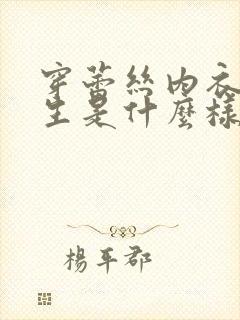 穿蕾丝内衣
生是什麼樣
楊平郡